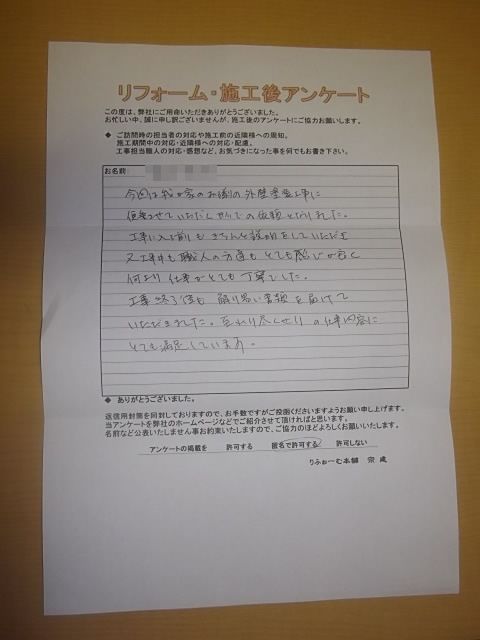 リフォーム・施工後アンケート
この度は、弊社にご用命いただきありがとうございました。
お忙しい中、誠に申し訳ございませんが、施工後のアンケートにご協力お願いします。
◆ ご訪問時の担当者の対応や施工前の近隣様への周知。
施工期間中の対応・近隣様への対応・配慮。
工事担当職人の対応・感想など、お気づきになった事を何でもお書き下さい。
お名前:
今回は我が家のお隣の外壁塗装工事に
便乗させていただく形での依頼となりました。
工事に入る前もきちんと説明をしていただき
又工事中も職人の方達もとても感じが良く
何より仕事がとても丁寧でした。
工事終了後も解り易い書類を届けて
いただきました。至れり尽くせりの仕事内容に
とても満足しています。
◆ ありがとうございました。
返信用封筒を同封しておりますので、お手数ですがご投函くださいますようお願い申し上げます。
当アンケートを弊社のホームページなどでご紹介させて頂ければと思います。
名前など公表いたしません事お約束いたしますので、ご協力のほどよろしくお願いいたします。
アンケートの掲載を 許可する 匿名で許可する 許可しない
りふぉーむ本舗 宗建